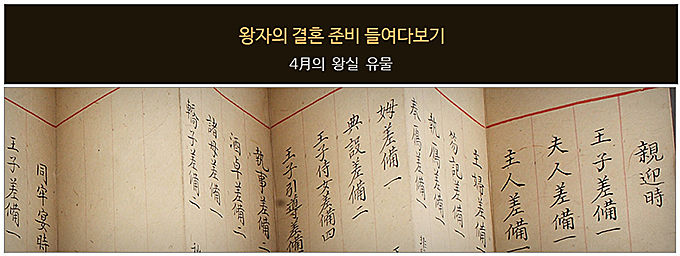 왕자의 결혼 준비 들여다보기
4月의 왕실 유물
親迎時
王子差備一
夫人差備一
主人差備一
主婦差備一
笏記差備一
執鴈差備一
奉鴈差備一
姆差備一
典設差備二
王子侍女差備四
王子引導差備
執事差備二
酒卓差備二
諸母差備二
轎子差備二
同牢宴時
王子差備一